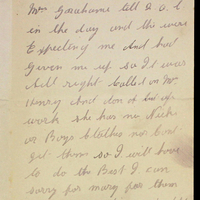 Mrs Gorahams till 2 O. C
in the day and the were
Expecting me and had
Given me up so I was
all right Called at Mr
Henry And don a bit of
work she has no Nicks
or Boys Clothes no Cont
get them so I will have
to do the Best I can
sorry for mary for them